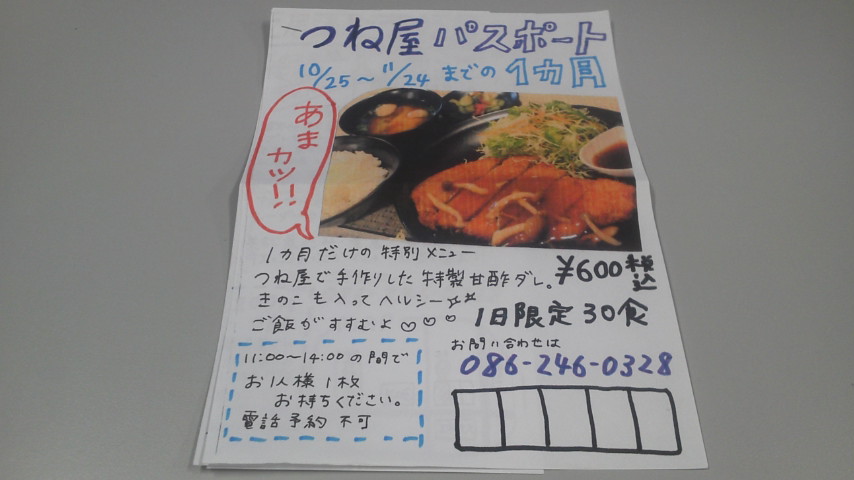 つね屋 パスポート
10/25～11/24 までの 1カ月
あま
カツ!!
1カ月だけの特別メニュー
つね屋で手作りした特製甘酢ダレ。
きのこも入ってヘルシー
ご飯がすすむよ♡♡♡
¥600税込
1日限定30食
お問い合わせは
086-246-0328
11:00～14:00の間で
お1人様1枚
お持ちください。
電話予約不可